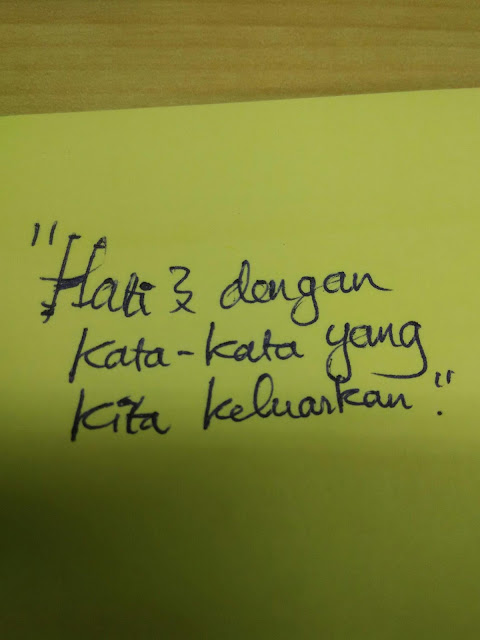 "Hati2 dengan
kata-kata yang
kita keluarkan".